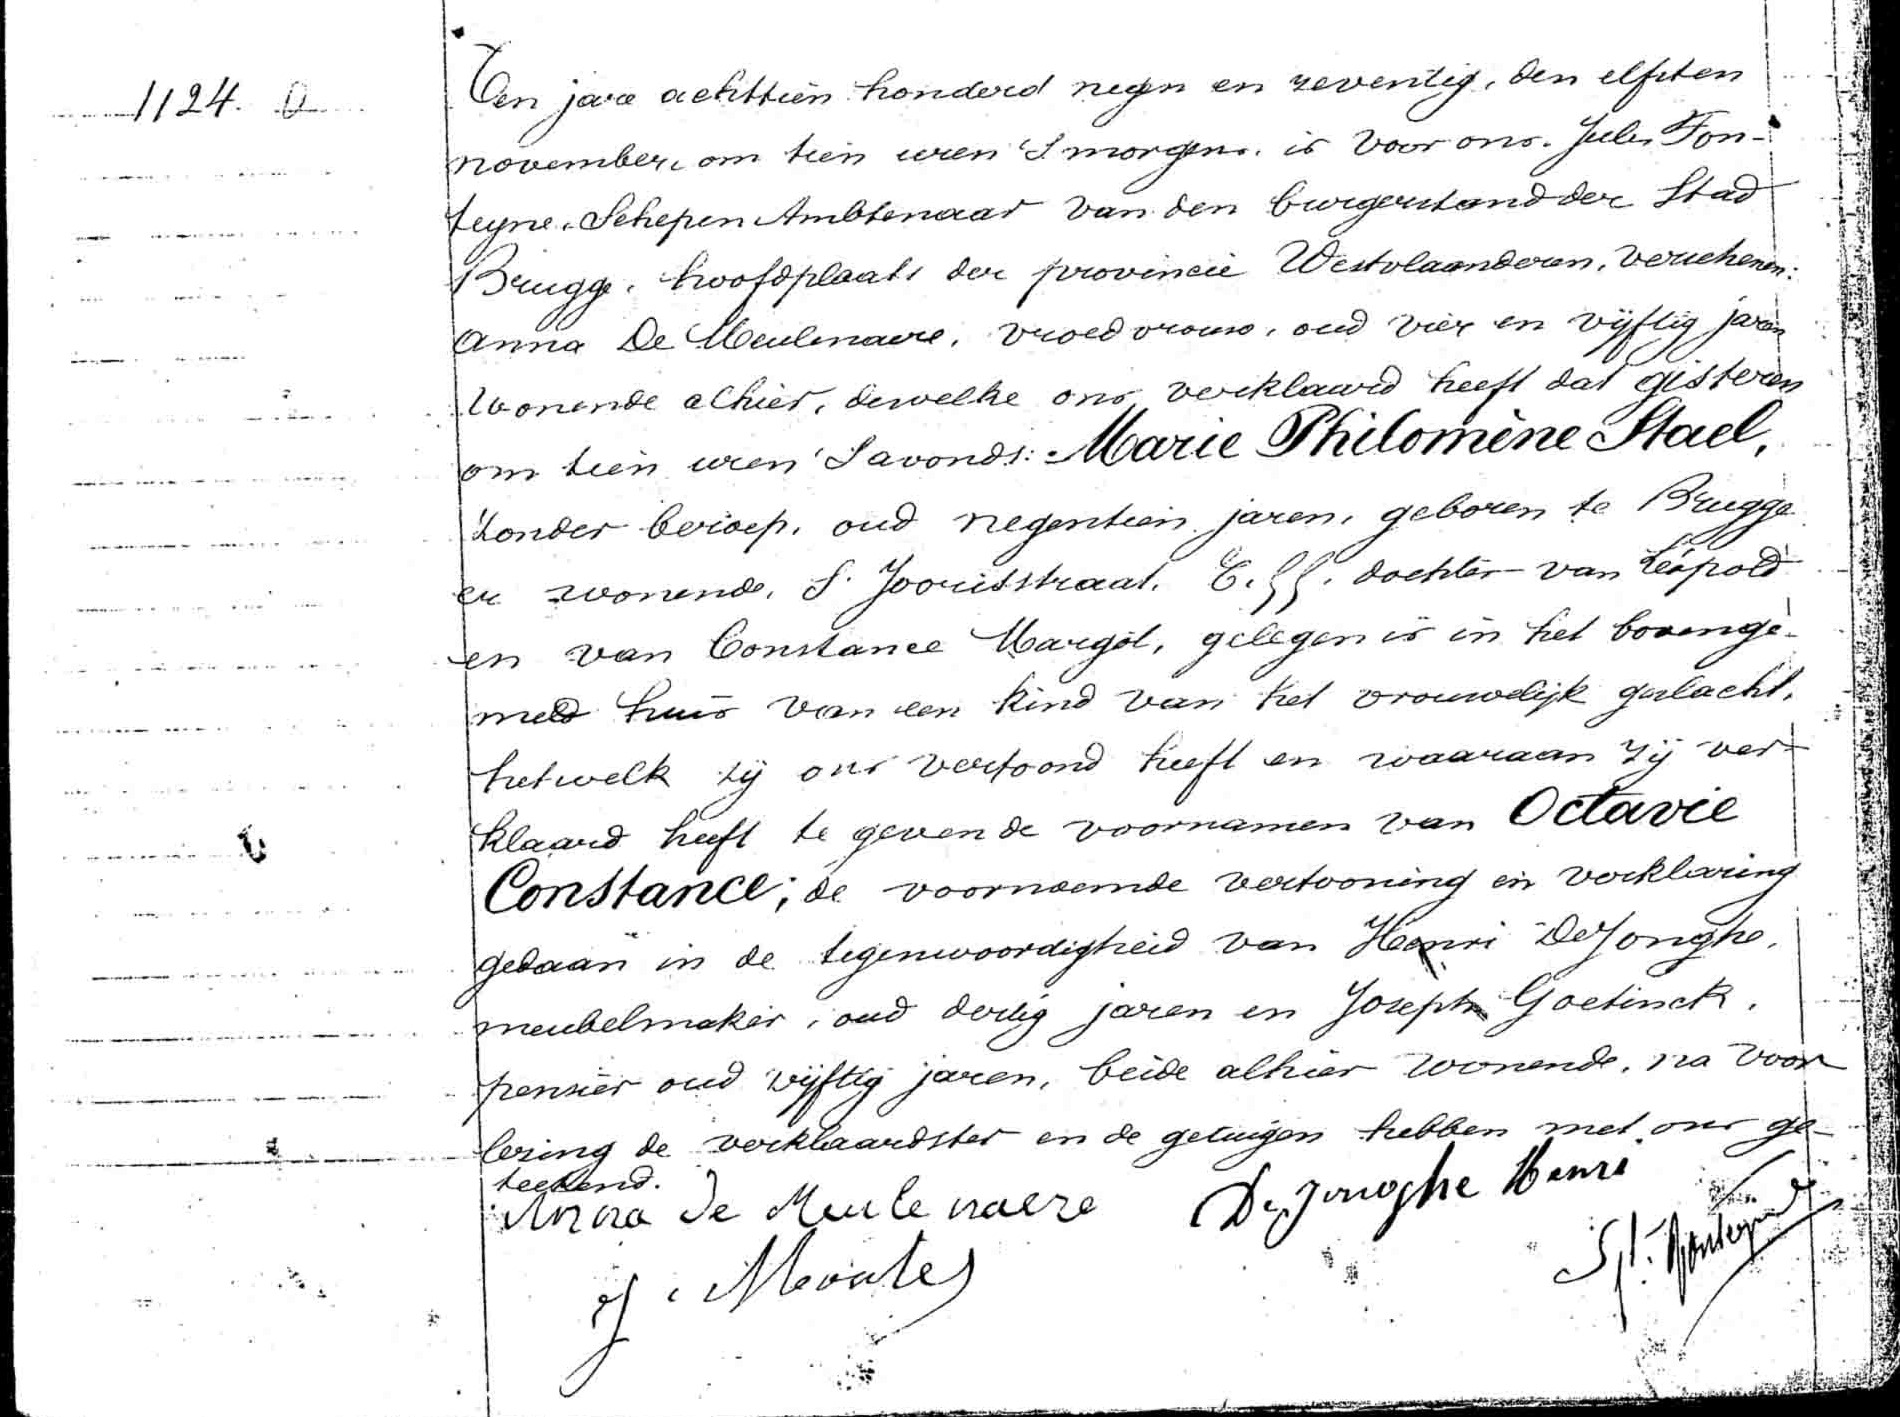 1124. O
Ten jare achttien honderd negen en zeventig, den elfsten
november, om tien uren 'S morgens. is voor ons. Jules Fon-
teyne. Schepen Ambtenaar van den burgerstand der Stad
Brugge, hoofdplaats der provincie Westvlaanderen, verschenen:
Anna De Meulenaere, vroedvrouw, oud vier en vijftig jaren
wonende alhier, dewelke ons verklaard heeft dat gisteren
om tien uren 'S avonds: Marie Philomène Stael,
zonder beroep, oud negentien jaren, geboren te Brugge
er wonende, S. Joorisstraat, E. 55. dochter van Léopold
en van Constance Margot, gelegen is in het bovenge-
meld huis van een kind van het vrouwelijk geslacht,
hetwelk zij ons vertoond heeft en waaraan zij ver-
klaard heeft te geven de voornamen van Octavie
Constance; de voornoemde vertooning en verklaring
gedaan in de tegenwoordigheid van Henri DeJonghe,
meubelmaker, oud dertig jaren en Joseph Goetinck.
pensier oud vijftig jaren, beide alhier wonende, na voor
lezing de verklaardster en de getuigen hebben met ons ge-
teekend.
Anna de Meulenaere De Jonghe Henri
J.